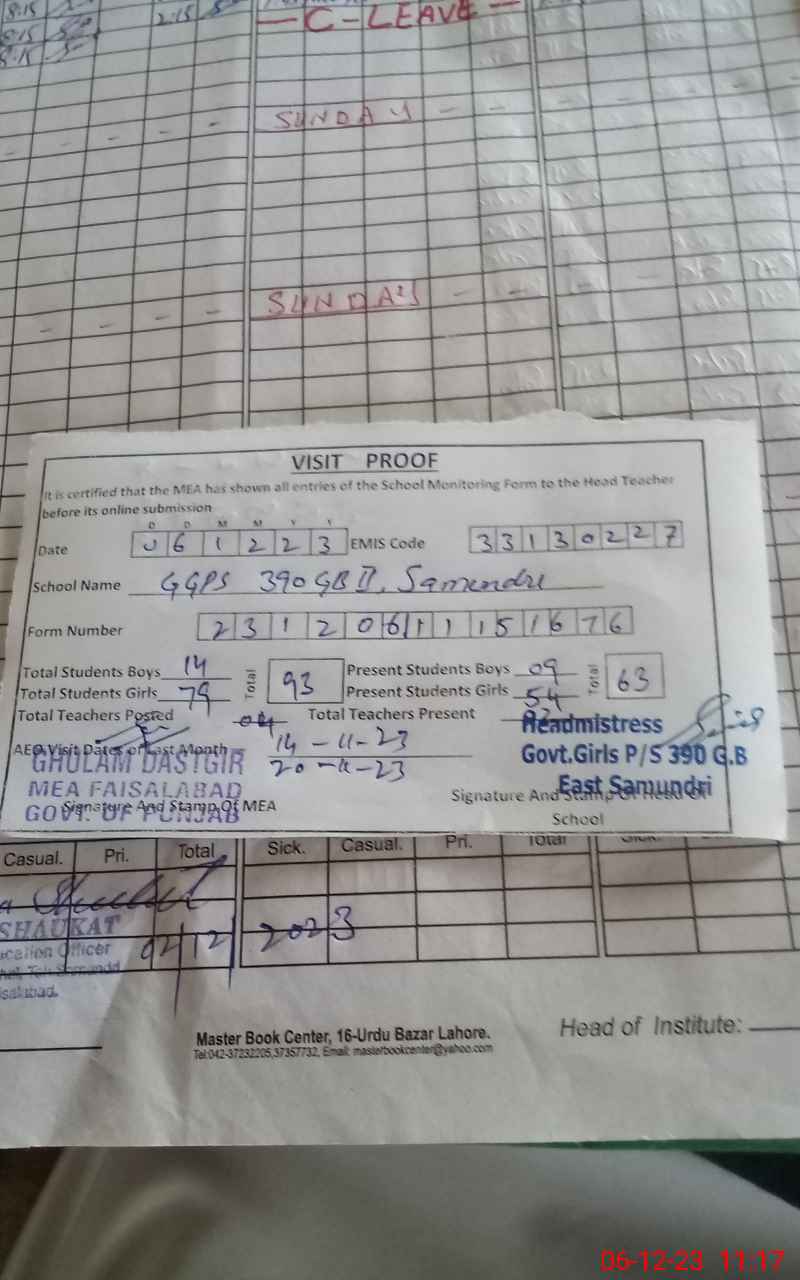 8:15
8:15 2:15
8:15
- C - LEAVE -
SUNDAY
SUNDAY
VISIT PROOF
It is certified that the MEA has shown all entries of the School Monitoring Form to the Head Teacher
before its online submission
D D M M Y Y
Date 0 6 1 2 2 3 EMIS Code 3 3 1 3 0 2 2 7
School Name GGPS 390 GB II, Samundri
Form Number 2 3 1 2 0 6 1 1 1 5 1 6 7 6
Total Students Boys 14 Total 93 Present Students Boys 09 Total 63
Total Students Girls 79 Present Students Girls 54
Total Teachers Posted 04 Total Teachers Present
AEO Visit Dates of Last Month 14-11-23
20-11-23
GHULAM DASTGIR
MEA FAISALABAD
GOVT. OF PUNJAB
Signature And Stamp Of MEA
Headmistress
Govt.Girls P/S 390 G.B
East Samundri
Signature And Stamp Of Head Of
School
Casual. Pri. Total Sick. Casual. Pri. Total Sick.
SHAUKAT
Officer
02/12/2023
Master Book Center, 16-Urdu Bazar Lahore.
Tel:042-37232205,37357732, Email: masterbookcenter@yahoo.com
Head of Institute:
06-12-23 11:17